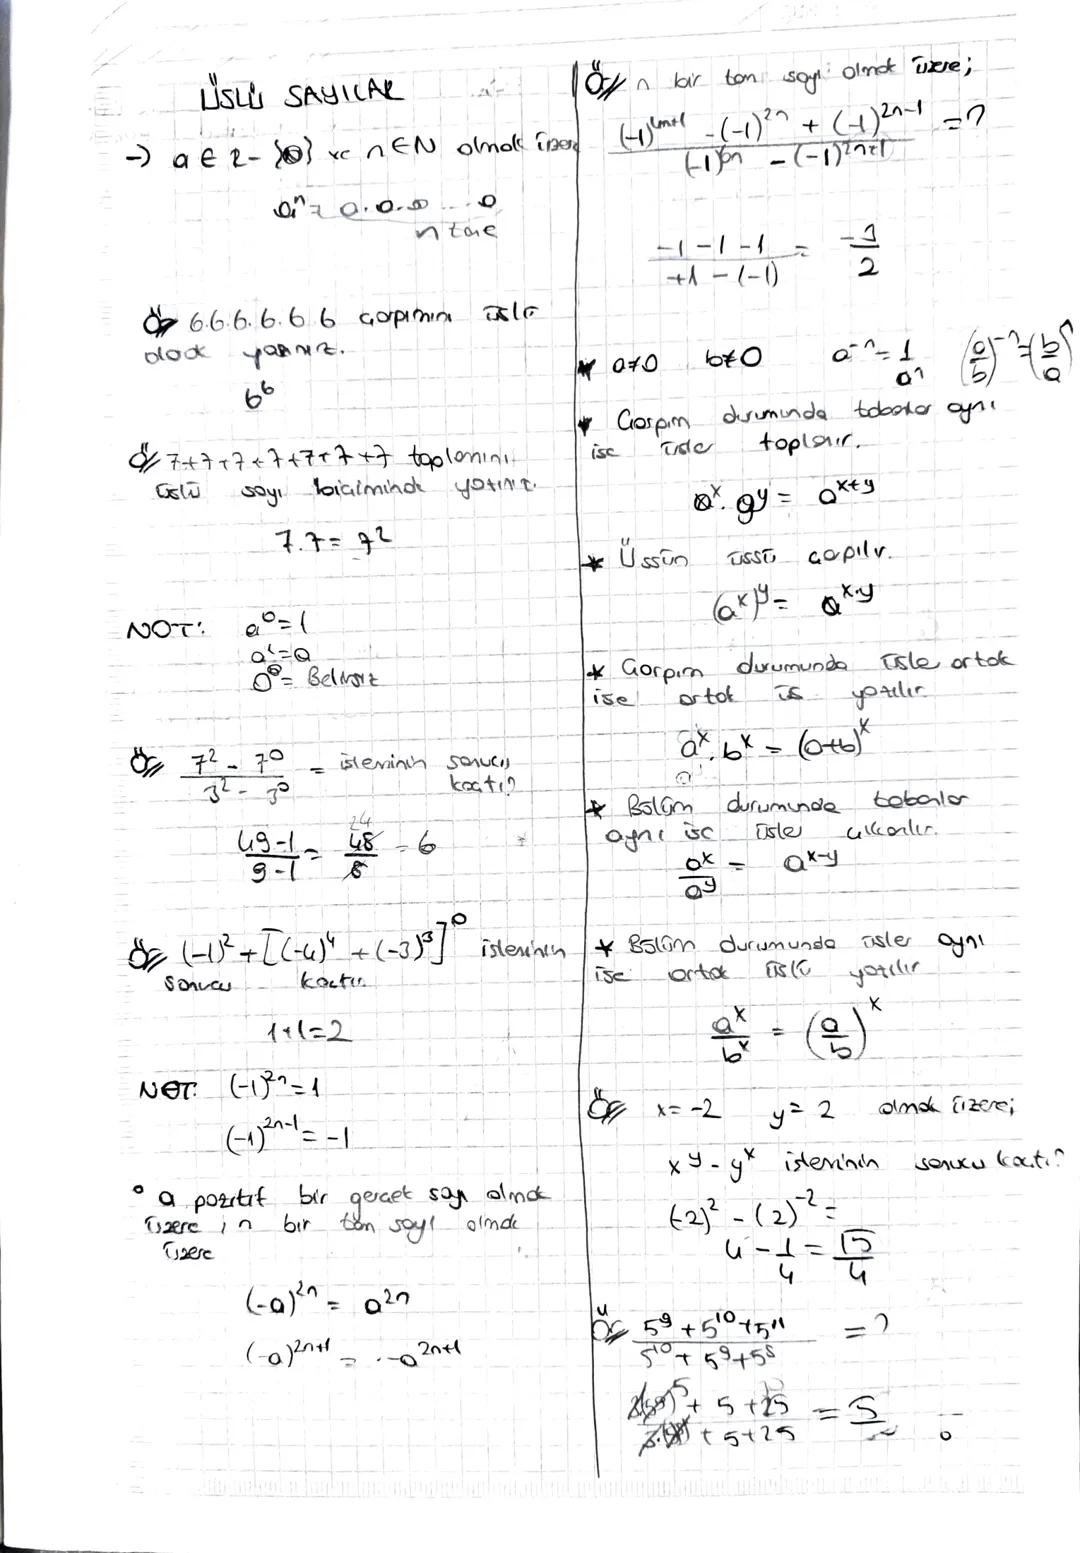 ÜSLÜ SAYILAR
→ a ∈ Z - {0} ve n ∈ N olmak üzere
aⁿ = a.a.a....a
n tane
Ör 6.6.6.6.6.6 çarpımını üslü
olarak yazınız.
6⁶
Ör 7+7+7+7+7+7+7 toplamını
üslü sayı biçiminde yazınız.
7.7 = 7²
NOT: a⁰ = 1
a¹ = a
0⁰ = Belirsiz
Ör (7² - 7⁰)/(3² - 3⁰) = işleminin sonucu
kaçtır?
(49-1)/(9-1) = 48/8 = 6
Ör (-1)² + [(-4)⁴ + (-3)³]⁰ işleminin
sonucu kaçtır.
1+1=2
NOT: (-1)²ⁿ = 1
(-1)²ⁿ⁻¹ = -1
° a pozitif bir gerçek sayı olmak
üzere ; n bir tam sayı olmak
üzere
(-a)²ⁿ = a²ⁿ
(-a)²ⁿ⁺¹ = -a²ⁿ⁺¹
Ör n bir tam sayı olmak üzere;
- (-1)²ⁿ + (-1)²ⁿ⁻¹ = ?
- (-1)²ⁿ⁺¹
(-1-1-1)/(+1-(-1)) = -3/2
* a≠0 b≠0 a⁻ⁿ = 1/aⁿ (a/b)⁻ⁿ = (b/a)ⁿ
* Çarpım durumunda tabanlar aynı
ise üsler toplanır.
aˣ.aʸ = aˣ⁺ʸ
* Üssün üssü çarpılır.
(aˣ)ʸ = aˣ·ʸ
* Çarpım durumunda üsler ortak
ise ortak üs yazılır.
aˣ.bˣ = (a+b)ˣ
* Bölüm durumunda tabanlar
aynı ise üsler çıkarılır.
aˣ/aʸ = aˣ⁻ʸ
* Bölüm durumunda üsler aynı
ise ortak üslü yazılır
aˣ/bˣ = (a/b)ˣ
Ör x = -2 y = 2 olmak üzere;
xʸ - yˣ işleminin sonucu kaçtır?
(-2)² - (2)⁻² =
4 - 1/4 = 15/4
Ör (5⁹ + 5¹⁰ + 5¹¹)/(5¹⁰ + 5⁹ + 5⁸) = ?
+ 5 + 25 = 5
+ 5 + 25